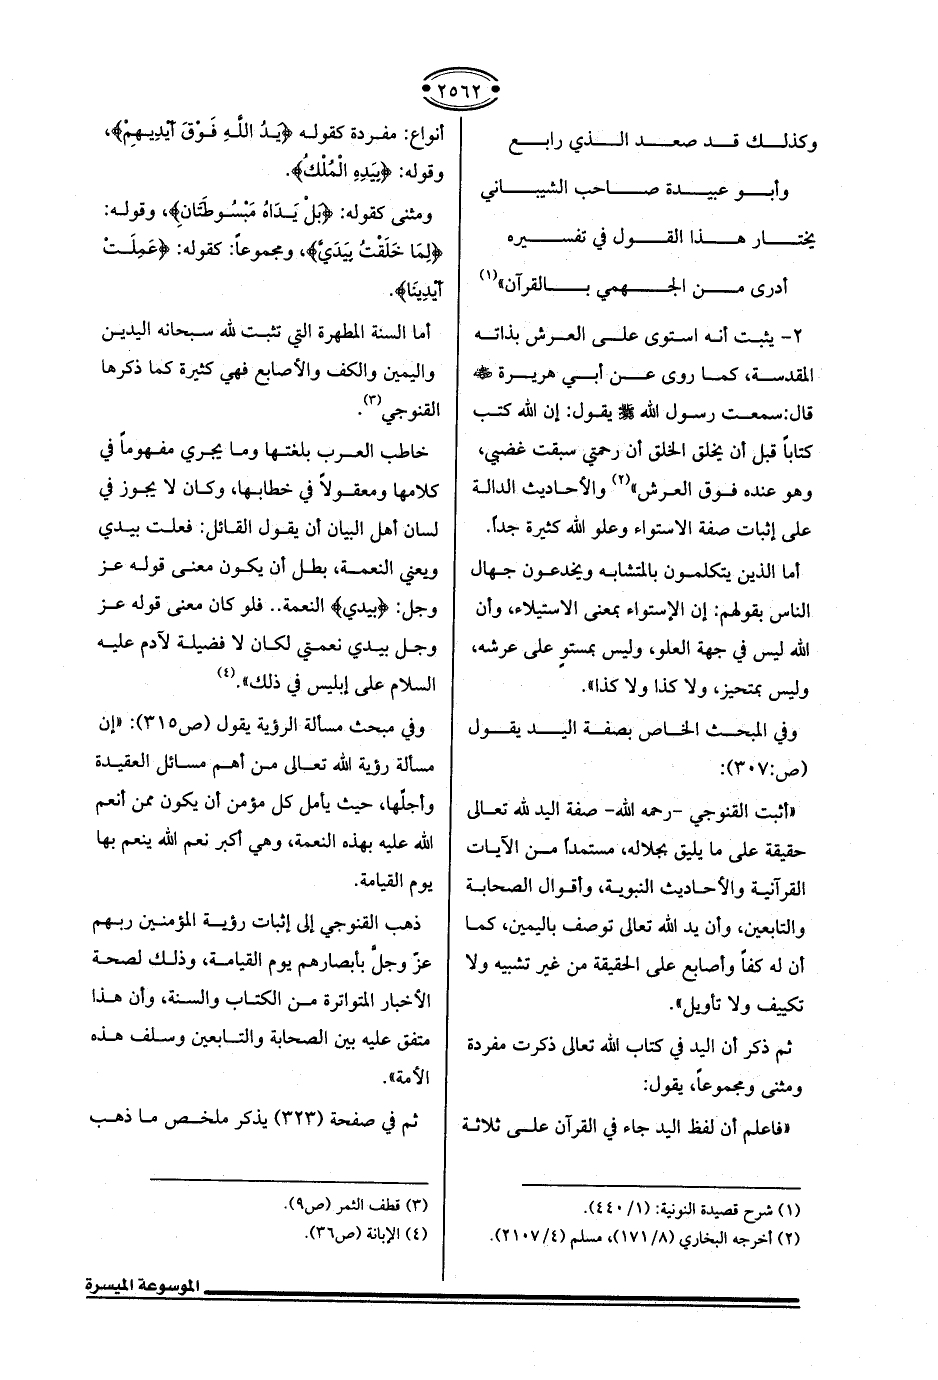 ٢٥٦٢
وكذلك قد صعد الذي رابع
وأبو عبيدة صاحب الشيباني
يختار هذا القول في تفسيره
أدرى من الجهمي بالقرآن»(١)
٢- يثبت أنه استوى على العرش بذاته
المقدسة، كما روى عن أبي هريرة ﷺ
قال:سمعت رسول الله ﷺ يقول: إن الله كتب
كتاباً قبل أن يخلق الخلق أن رحمتي سبقت غضبي،
وهو عنده فوق العرش»(٢) والأحاديث الدالة
على إثبات صفة الاستواء وعلو الله كثيرة جداً.
أما الذين يتكلمون بالمتشابه ويخدعون جهال
الناس بقولهم: إن الإستواء بمعنى الاستيلاء، وأن
الله ليس في جهة العلو، وليس بمستوٍ على عرشه،
وليس بمتحيز، ولا كذا ولا كذا».
وفي المبحث الخاص بصفة اليد يقول
(ص:٣٠٧):
«أثبت القنوجي -رحمه الله- صفة اليد لله تعالى
حقيقة على ما يليق بجلاله، مستمداً من الآيات
القرآنية والأحاديث النبوية، وأقوال الصحابة
والتابعين، وأن يد الله تعالى توصف باليمين، كما
أن له كفاً وأصابع على الحقيقة من غير تشبيه ولا
تكييف ولا تأويل».
ثم ذكر أن اليد في كتاب الله تعالى ذكرت مفردة
ومثنى ومجموعاً، يقول:
«فاعلم أن لفظ اليد جاء في القرآن على ثلاثة
(١) شرح قصيدة النونية: (١/ ٤٤٠).
(٢) أخرجه البخاري (٨/ ١٧١)، مسلم (٤/ ٢١٠٧).
أنواع: مفردة كقوله ﴿يَدُ اللَّهِ فَوْقَ أَيْدِيهِمْ﴾،
وقوله: ﴿بِيَدِهِ الْمُلْكُ﴾.
ومثنى كقوله: ﴿بَلْ يَدَاهُ مَبْسُوطَتَانِ﴾، وقوله:
﴿لِمَا خَلَقْتُ بِيَدَيَّ﴾، ومجموعاً: كقوله: ﴿عَمِلَتْ
أَيْدِينَا﴾.
أما السنة المطهرة التي تثبت لله سبحانه اليدين
واليمين والكف والأصابع فهي كثيرة كما ذكرها
القنوجي(٣).
خاطب العرب بلغتها وما يجري مفهوماً في
كلامها ومعقولاً في خطابها، وكان لا يجوز في
لسان أهل البيان أن يقول القائل: فعلت بيدي
ويعني النعمة، بطل أن يكون معنى قوله عز
وجل: ﴿بيدي﴾ النعمة.. فلو كان معنى قوله عز
وجل بيدي نعمتي لكان لا فضيلة لآدم عليه
السلام على إبليس في ذلك».(٤)
وفي مبحث مسألة الرؤية يقول (ص٣١٥): «إن
مسألة رؤية الله تعالى من أهم مسائل العقيدة
وأجلّها، حيث يأمل كل مؤمن أن يكون ممن أنعم
الله عليه بهذه النعمة، وهي أكبر نعم الله ينعم بها
يوم القيامة.
ذهب القنوجي إلى إثبات رؤية المؤمنين ربهم
عزّ وجلَّ بأبصارهم يوم القيامة، وذلك لصحة
الأخبار المتواترة من الكتاب والسنة، وأن هذا
متفق عليه بين الصحابة والتابعين وسلف هذه
الأمة».
ثم في صفحة (٣٢٣) يذكر ملخص ما ذهب
(٣) قطف الثمر (ص٩).
(٤) الإبانة (ص٣٦).
الموسوعة الميسرة